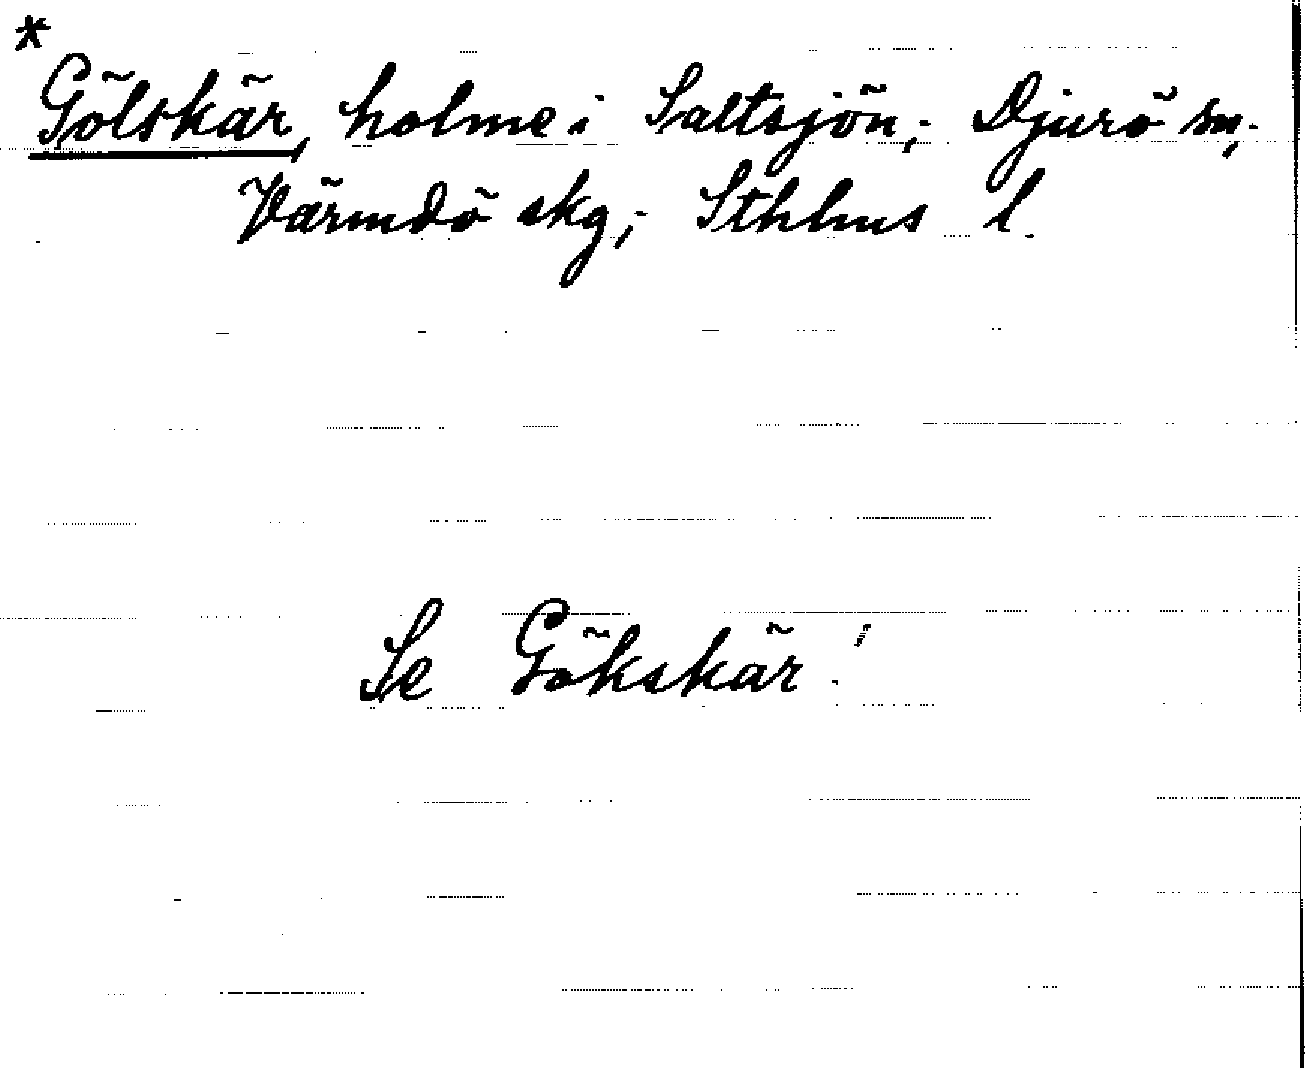 *
Gölskär, holme i Saltsjön,- Djurö sn,-
Värmdö skg,- Sthlms l.
Se Gökskär!